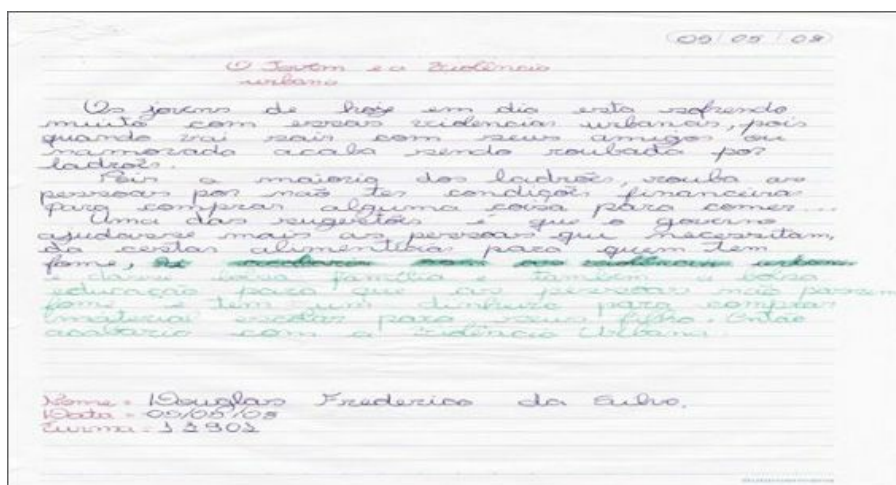 05/05/08
O Jovem e a Violência
urbana
Os jovens de hoje em dia esta sofrendo
muito com essas violencias urbanas, pois
quando vai sair com seus amigos ou
namorada acaba sendo roubada por
ladrões.
Pois a maioria dos ladrões, rouba as
pessoas por não ter condições financeiras
para comprar alguma coisa para comer...
Uma das sugestões é que o governo
ajudasse mais as pessoas que necessitam,
da cestas alimentícias para quem tem
fome,
e dasse bolsa família e também o bolsa
educação para que as pessoas não passem
fome e tem um dinheiro para comprar
material escolar para seus filho. Então
acabaria com a violência Urbana.
Nome = Douglas Frederico da Silva.
Data = 05/05/08
Turma = 11901